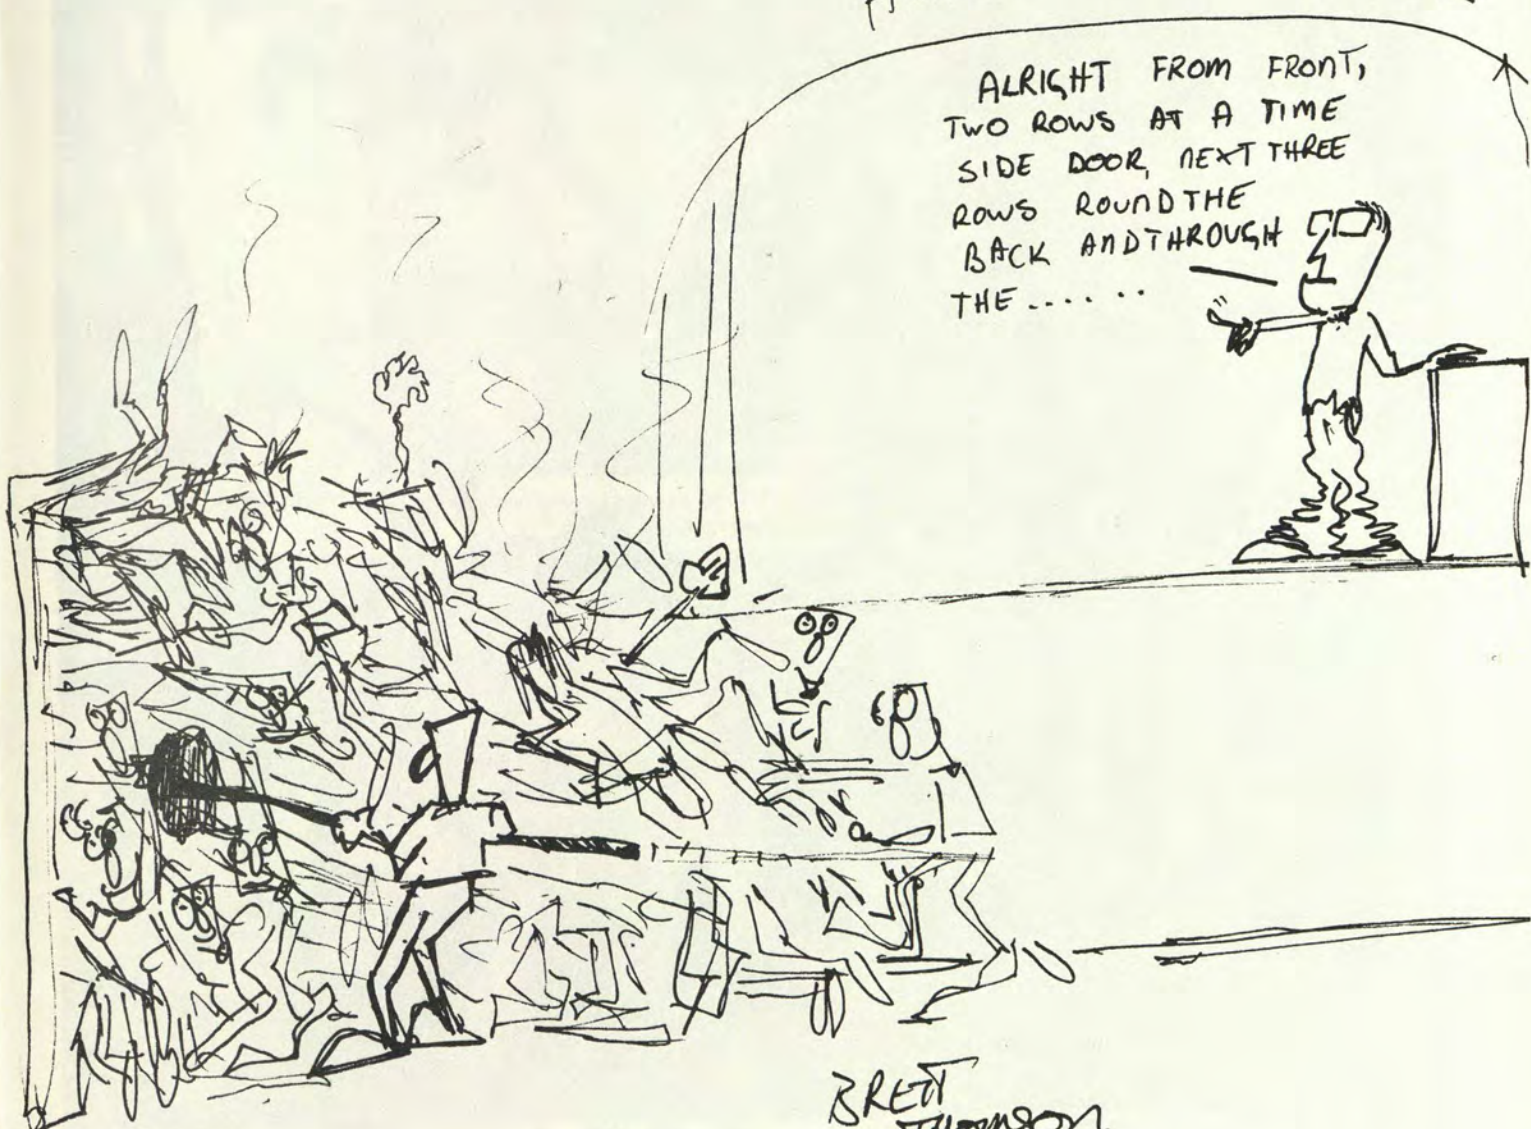 ALRIGHT FROM FRONT,
TWO ROWS AT A TIME
SIDE DOOR, NEXT THREE
ROWS ROUND THE
BACK AND THROUGH
THE......
BRETT
THOMSON